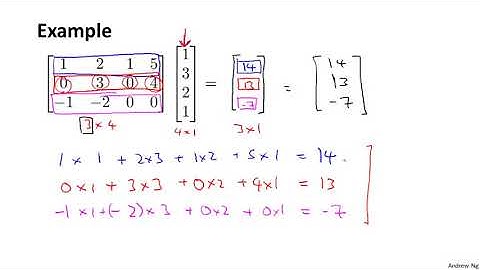 Example
1 2 1 5
0 3 0 4
-1 -2 0 0
1
3
2
1
=
14
13
-7
=
14
13
-7
3 × 4
4×1
3×1
1 × 1 + 2×3 + 1×2 + 5×1 = 14.
0×1 + 3×3 + 0×2 + 4×1 = 13
-1×1+(-2)×3 + 0×2 + 0×1 = -7
Andrew Ng